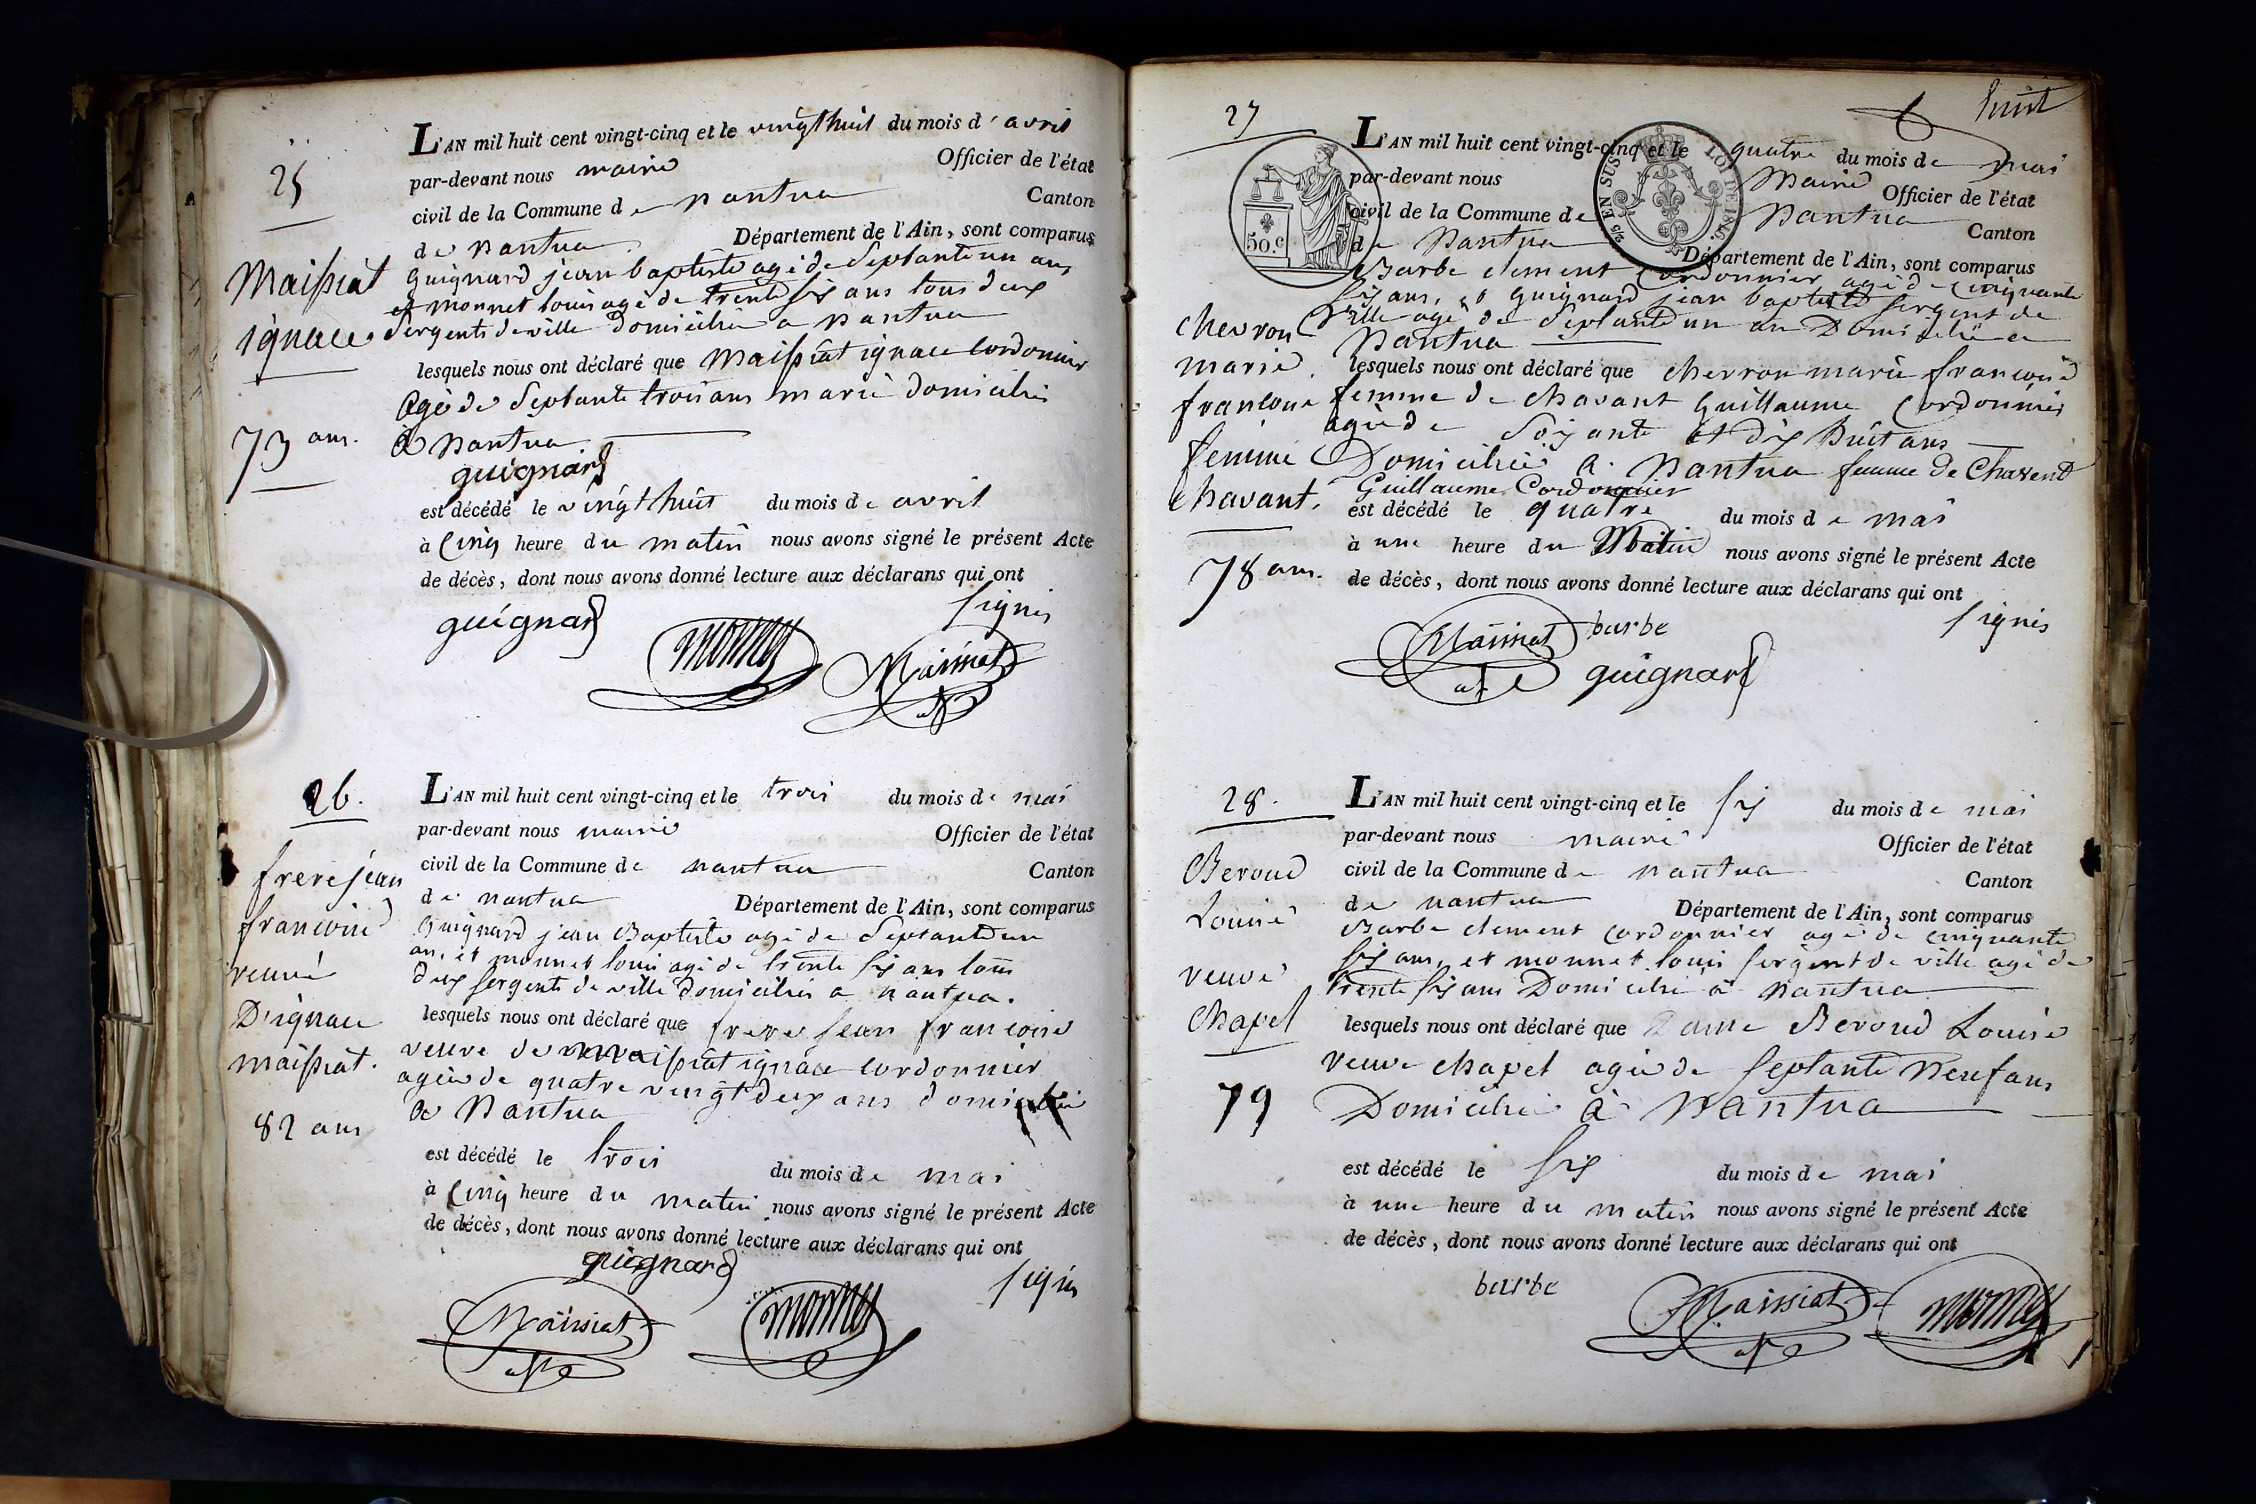 25
Maissiat
ignace
73 ans.
L'AN mil huit cent vingt-cinq et le vingt huit du mois d'avril
par-devant nous maire Officier de l'état
civil de la Commune de nantua Canton
de nantua Département de l'Ain, sont comparus
guignard jean baptiste agé de septante un ans
et monnet louis agé de trente six ans tous deux
sergents de ville domicilié a nantua
lesquels nous ont déclaré que Maissiat ignace cordonnier
agé de septante trois ans marié domicilié
à nantua
guignard
est décédé le vingt huit du mois de avril
à cinq heure du matin nous avons signé le présent Acte
de décès, dont nous avons donné lecture aux déclarans qui ont
signés
guignard monnet Maissiat
26.
frere jean
francoise
veuve
D'ignace
maissiat.
82 ans
L'AN mil huit cent vingt-cinq et le trois du mois de mai
par-devant nous maire Officier de l'état
civil de la Commune de nantua Canton
de nantua Département de l'Ain, sont comparus
guignard jean Baptiste agé de septante un
an, et monnet louis agé de trente six ans tous
deux sergents de ville domiciliés a nantua.
lesquels nous ont déclaré que frere jean francoise
veuve de maissiat ignace cordonnier
agée de quatre vingt deux ans domiciliée
a Nantua
est décédé le trois du mois de mai
à cinq heure du matin nous avons signé le présent Acte
de décès, dont nous avons donné lecture aux déclarans qui ont
guignard signés
Maissiat monnet
huit
27
chevron
marie
francoise
femme
chavant.
78 ans.
50.c
EN SUS
LOI DE 1816.
L'AN mil huit cent vingt-cinq et le quatre du mois de mai
par-devant nous Maire Officier de l'état
civil de la Commune de Nantua Canton
de Nantua Département de l'Ain, sont comparus
Barbe clement cordonnier agé de cinquante
six ans, et guignard jean baptiste sergent de
ville agé de septante un an Domicilié a
Nantua
lesquels nous ont déclaré que chevron marie francoise
femme de chavant guillaume cordonnier
agée de soixante et dix huit ans
Domiciliée a Nantua femme de Chavent
Guillaume Cordonnier
est décédé le quatre du mois de mai
à une heure du Matin nous avons signé le présent Acte
de décès, dont nous avons donné lecture aux déclarans qui ont
signés
Maissiat barbe
guignard
28.
Beroud
Louise
veuve
chapel
79
L'AN mil huit cent vingt-cinq et le six du mois de mai
par-devant nous maire Officier de l'état
civil de la Commune de nantua Canton
de nantua Département de l'Ain, sont comparus
Barbe clement cordonnier agé de cinquante
six ans, et monnet louis sergent de ville agé de
trente six ans Domicilié à nantua
lesquels nous ont déclaré que Dame Beroud Louise
veuve chapel agée de septante neuf ans
Domiciliée à nantua
est décédé le six du mois de mai
à une heure du matin nous avons signé le présent Acte
de décès, dont nous avons donné lecture aux déclarans qui ont
barbe Maissiat monnet